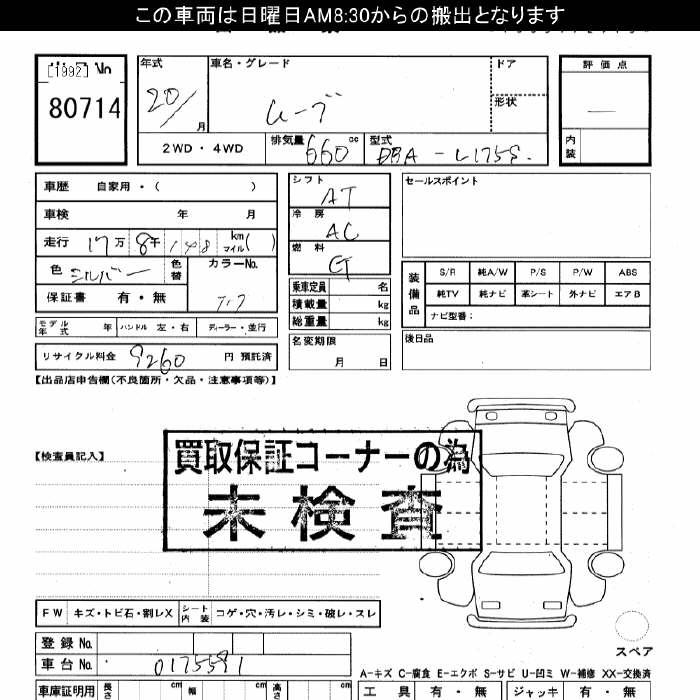 この車両は日曜日AM8:30からの搬出となります
[1992] No
80714
年式 20/ 月
車名・グレード ムーブ
ドア
形状
評価点
内装
2WD・4WD
排気量 660 cc
型式 DBA-L175S.
車歴 自家用・( )
車検 年 月
走行 17万 8千 148 km マイル( )
色 シルバー 色替
カラーNo. T17
保証書 有・無
モデル年式 年 ハンドル 左・右 ディーラー・並行
リサイクル料金 9260 円 預託済
シフト AT
冷房 AC
燃料 G
乗車定員 名
積載量 kg
総重量 kg
名変期限
月 日
セールスポイント
装備品
S/R 純A/W P/S P/W ABS
純TV 純ナビ 革シート 外ナビ エアB
ナビ型番:
後日品
【出品店申告欄(不良箇所・欠品・注意事項等)】
【検査員記入】
買取保証コーナーの為
未検査
FW キズ・トビ石・割レX シート内装 コゲ・穴・汚レ・シミ・破レ・スレ
スペア
登録No.
車台No. 0175591
A-キズ C-腐食 E-エクボ S-サビ U-凹ミ W-補修 XX-交換済
車庫証明用 長さ cm 幅 cm 高さ cm
工具 有・無 ジャッキ 有・無